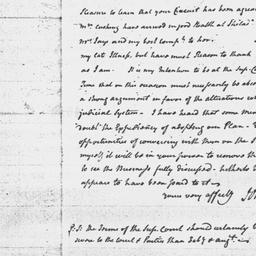 Pleasure to learn that your Circuit has been agreea
Mrs Cushing have arrived in good Health at Philad
Mrs Jays and my best compts to her.
my late Illness, but have much Reason to thank
as I am. It is my Intention to be at the Sup. C
Time that on this occasion must necessarily be abse
a strong argument in favor of the alterations wh
judicial System. I have heard that some
doubt the Expediency of adopting our Plan.
opportunities of conversing with them on the
myself, it will be in your power to remove th
to see the Business fully discussed.
appear to have been found to it
yours very affectly
P.S. the Terms of the Sup. Court should certainly be
more to the Court & Parties than Feby & Augt.